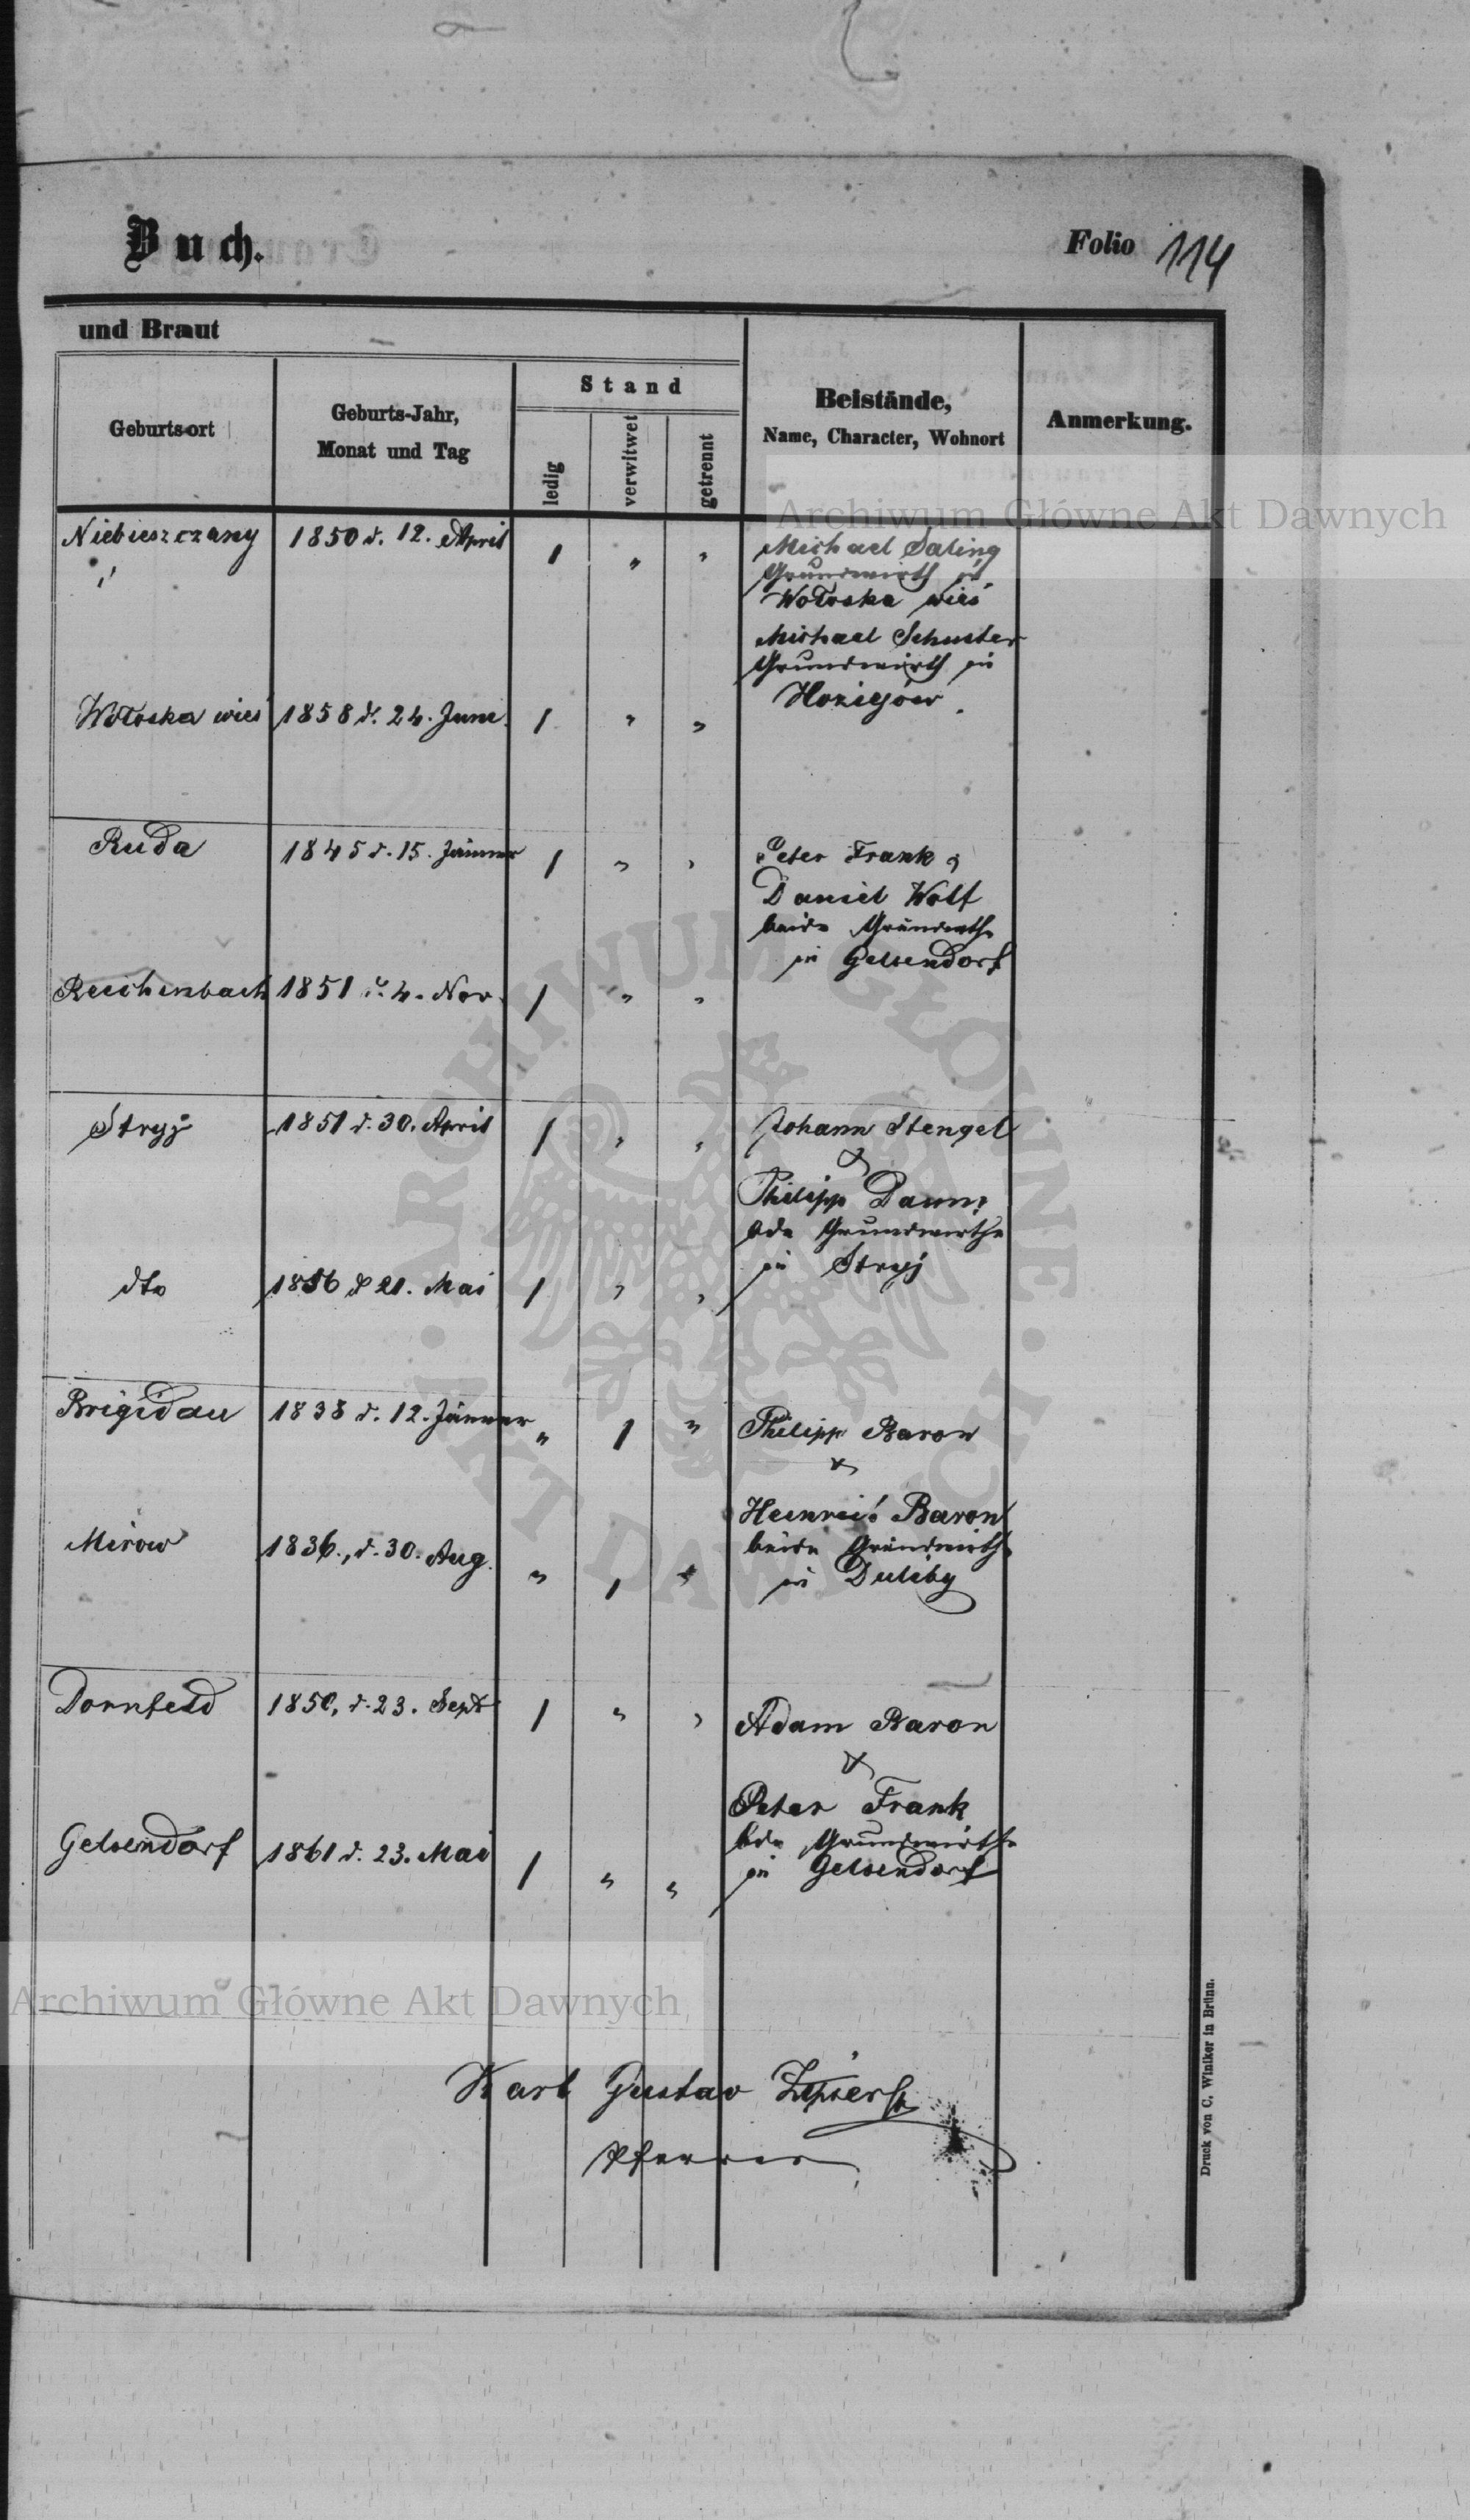 Buch.
Folio 114
und Braut
Geburtsort
Geburts-Jahr,
Monat und Tag
Stand
ledig
verwitwet
getrennt
Beistände,
Name, Character, Wohnort
Anmerkung.
Archiwum Główne Akt Dawnych
Niebieszczany 1850 d. 12. April 1 " " Michael Saling
Grundwirth in
Wołoska wieś
Michael Schuster
Grundwirth in
Wołoska wieś 1858 d. 24. Juni 1 " "
Ruda 1845 d. 15. Jänner 1 " " Peter Frank &
Daniel Wolf
beide Grundwirthe
in Gelsendorf
Reichenbach 1851 d. 4. Nov. 1 " "
Stryj 1851 d. 30. April 1 " " Johann Stengel
&
Philipp Daum
bde Grundwirthe
in Stryj
dto 1856 d 21. Mai 1 " "
Brigidau 1838 d. 12. Jänner " 1 " Philipp Baron
&
Heinrich Baron
beide Grundwirthe
in Duliby
Mirow 1836., d. 30. Aug. " 1 "
Dornfeld 1850, d. 23. Sept 1 " " Adam Baron
&
Peter Frank
bde Grundwirthe
in Gelsendorf
Gelsendorf 1861 d. 23. Mai 1 " "
Archiwum Główne Akt Dawnych
Karl Gustav Zipser
Pfarrer
Druck von C. Winiker in Brünn.
ARCHIWUM GŁÓWNE · AKT DAWNYCH ·